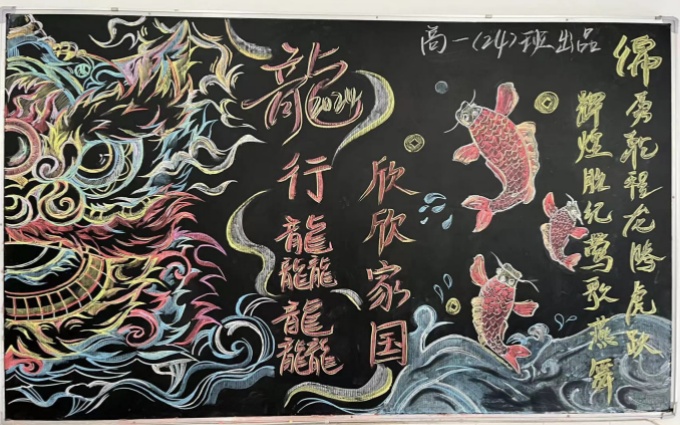 高一(24)班出品
龍行龘龘
2024
欣欣家国
程龙腾虎跃
辉煌胜纪莺歌燕舞